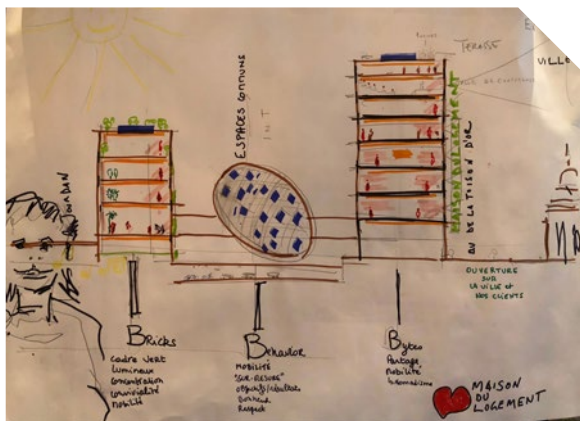 TERASSE
VILLE
ESPACES COMMUNS
MAISON DU LOGEMENT
AV DE LA TOISON D'OR
JOURDAN
OUVERTURE
SUR
LA VILLE et
NOS CLIENTS
Bricks
cadre vert
lumineux
concentration
convivialité
mobilité
Behavior
MOBILITÉ
"SUR-MESURE"
objectifs/résultats
Bonheur
Respect
Bytes
Partage
mobilité
MAISON
DU
LOGEMENT